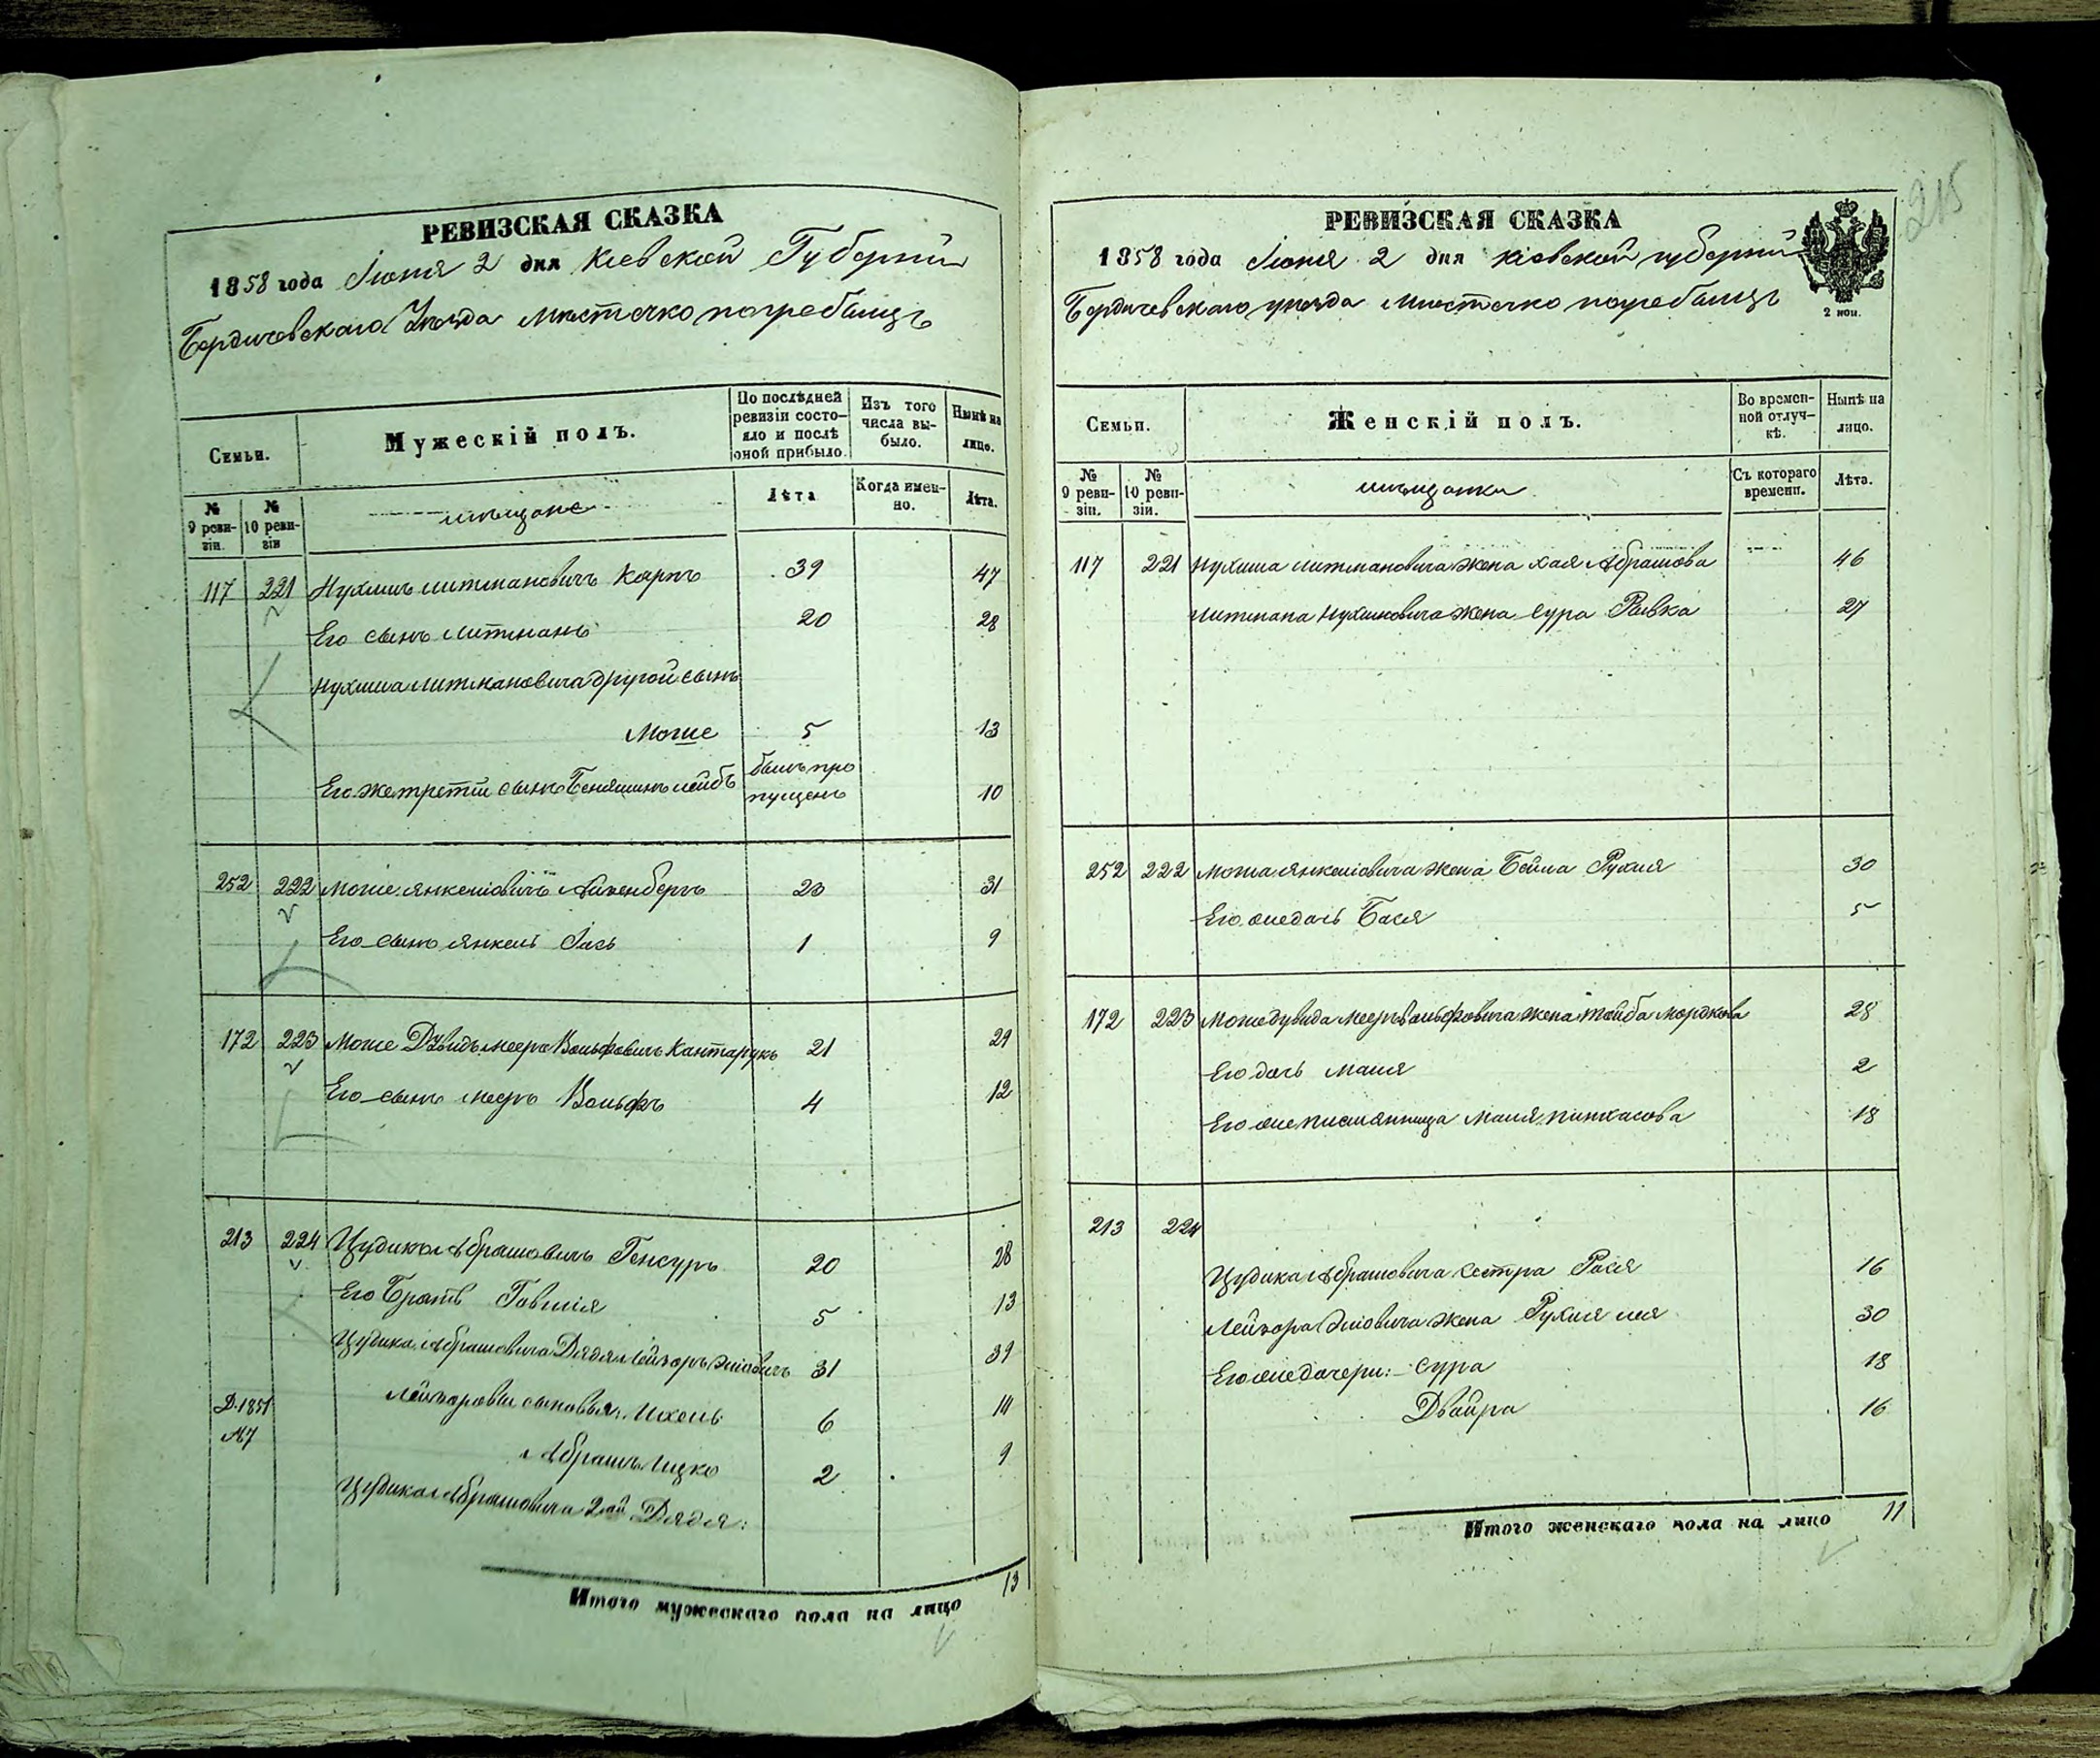 РЕВИЗСКАЯ СКАЗКА
1858 года Іюня 2 дня Кіевской Губерніи
Бердичевскаго Уѣзда мѣстечко погребищъ
Семьи.
Мужескій полъ.
По послѣдней ревизіи состояло и послѣ оной прибыло.
Изъ того числа выбыло.
Нынѣ на лицо.
№ 9 ревизіи.
№ 10 ревизіи
мѣщане
Лѣта
Когда именно.
Лѣта.
117 221 Нухимъ литмановичъ Карпъ 39 47
Его сынъ литманъ 20 28
Нухима литмановича другой сынъ
Мошие 5 13
Его же третій сынъ Беніяминъ лейбъ былъ пропущенъ 10
252 222 Мошие янкелiовичъ Айзенбергъ 23 31
Его сынъ янкель Іось 1 9
172 223 Мошие Дувидъ мееръ Вольфовичъ Кантарукъ 21 29
Его сынъ мееръ Вольфъ 4 12
213 224 Цудикъ Абрамовичъ Генсуръ 20 28
Его Братъ Говшія 5 13
Цудика Абрамовича Дядя лейзоръ Эліовичъ 31 39
Д. 1851 №7
лейзоровы сыновья: Ихель 6 14
Абрамъ Ицко 2 9
Цудика Абрамовича 2ой Дядя:
Итого мужескаго пола на лицо 13
215
РЕВИЗСКАЯ СКАЗКА
1858 года Іюня 2 дня кіевской губерніи
Бердичевскаго уѣзда мѣстечко погребищъ
2 коп.
Семьи.
Женскій полъ.
Во временной отлучкѣ.
Нынѣ на лицо.
№ 9 ревизіи.
№ 10 ревизіи.
мѣщанки
Съ котораго времени.
Лѣта.
117 221 Нухима литмановича жена хая Абрамова 46
литмана нухимовича жена сура Ривка 27
252 222 Моша янкеліовича жена Бейла Рухля 30
Его же дочь Бася 5
172 223 Моше дувида меера вольфовича жена тойба мордкова 28
Его дочь маля 2
Его же племянница маля пинхасова 18
213 224
Цудика Абрамовича сестра Рася 16
лейзора Эліовича жена Рухля лея 30
Его же дочери: сура 18
Двойра 16
Итого женскаго пола на лицо 11